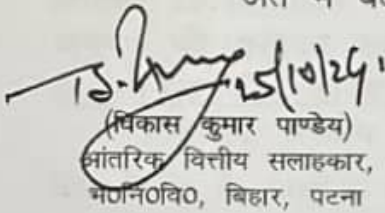 25/10/24
(विकास कुमार पाण्डेय)
आंतरिक वित्तीय सलाहकार,
भ०नि०वि०, बिहार, पटना